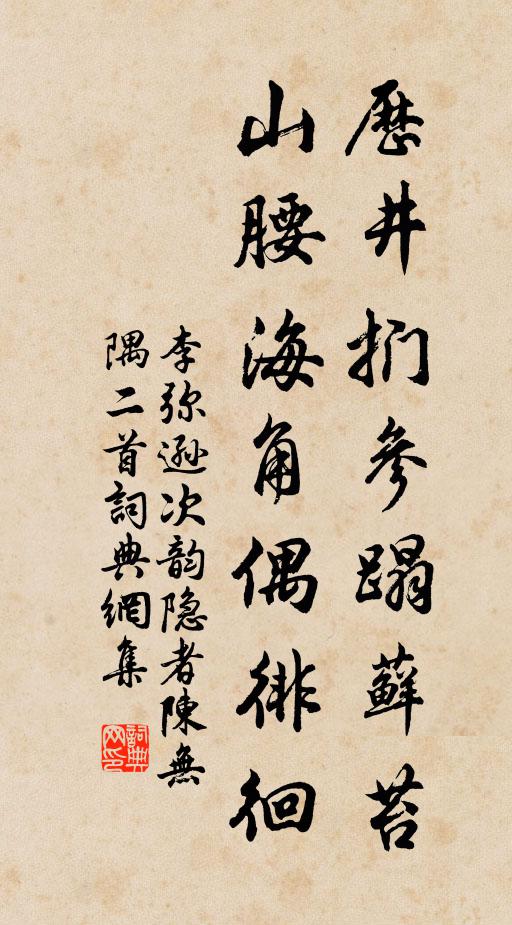 歷井捫參蹋蘚苔
山腰海角偶徘徊
李弥遜次韵隐者陳無
隅二首詞典網集
詞典网印